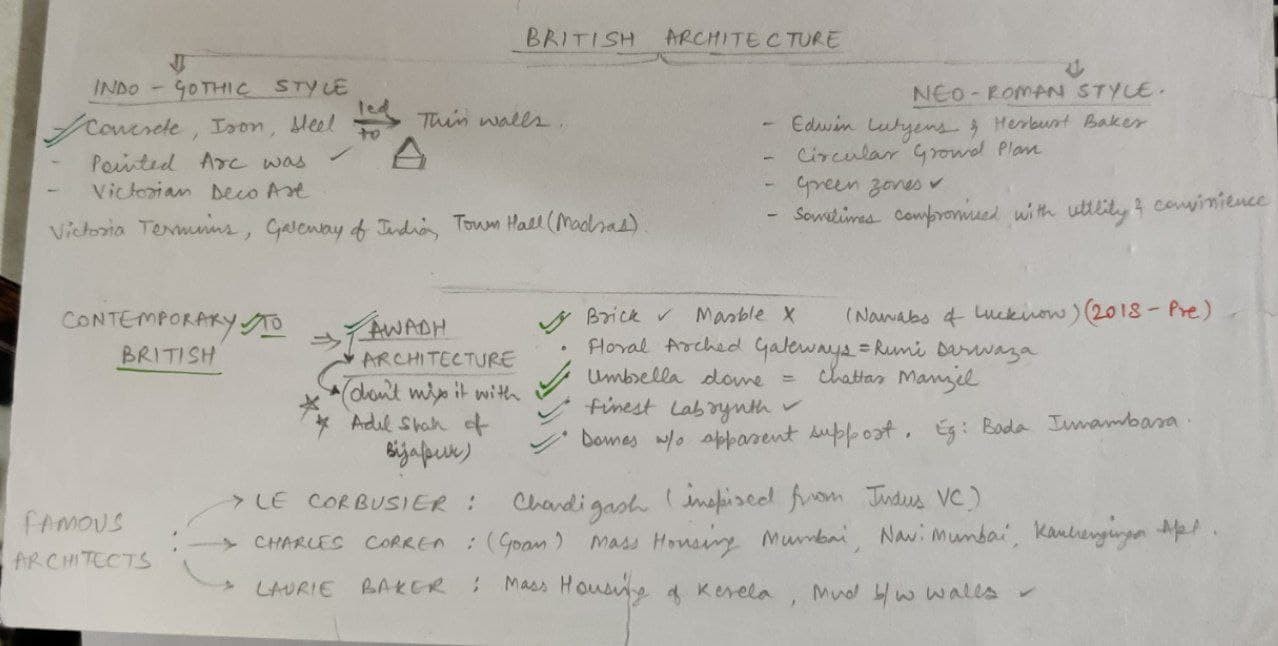 BRITISH ARCHITECTURE
INDO - GOTHIC STYLE
Concrete, Iron, Steel led to Thin walls.
- Pointed Arc was ✓
- Victorian Deco Art
Victoria Terminus, Gateway of India, Town Hall (Madras).
NEO - ROMAN STYLE.
- Edwin Lutyens & Herburt Baker
- Circular Ground Plan
- Green zones ✓
- Sometimes compromised with utility & convinience
CONTEMPORARY TO
BRITISH
⇒ AWADH
ARCHITECTURE
(don't mix it with
Adil Shah of
Bijapur)
Brick ✓ Marble X (Nawabs of Lucknow) (2018 - Pre)
• Floral Arched Gateways = Rumi Darwaza
• Umbrella dome = Chattar Manzil
• Finest Labrynth ✓
• Domes w/o apparent support. Eg: Bada Imambara.
FAMOUS
ARCHITECTS :
→ LE CORBUSIER : Chandigarh (inspired from Indus VC)
→ CHARLES CORREA : (Goan) Mass Housing Mumbai, Navi Mumbai, Apt.
→ LAURIE BAKER : Mass Housing of Kerela, Mud b/w walls ✓